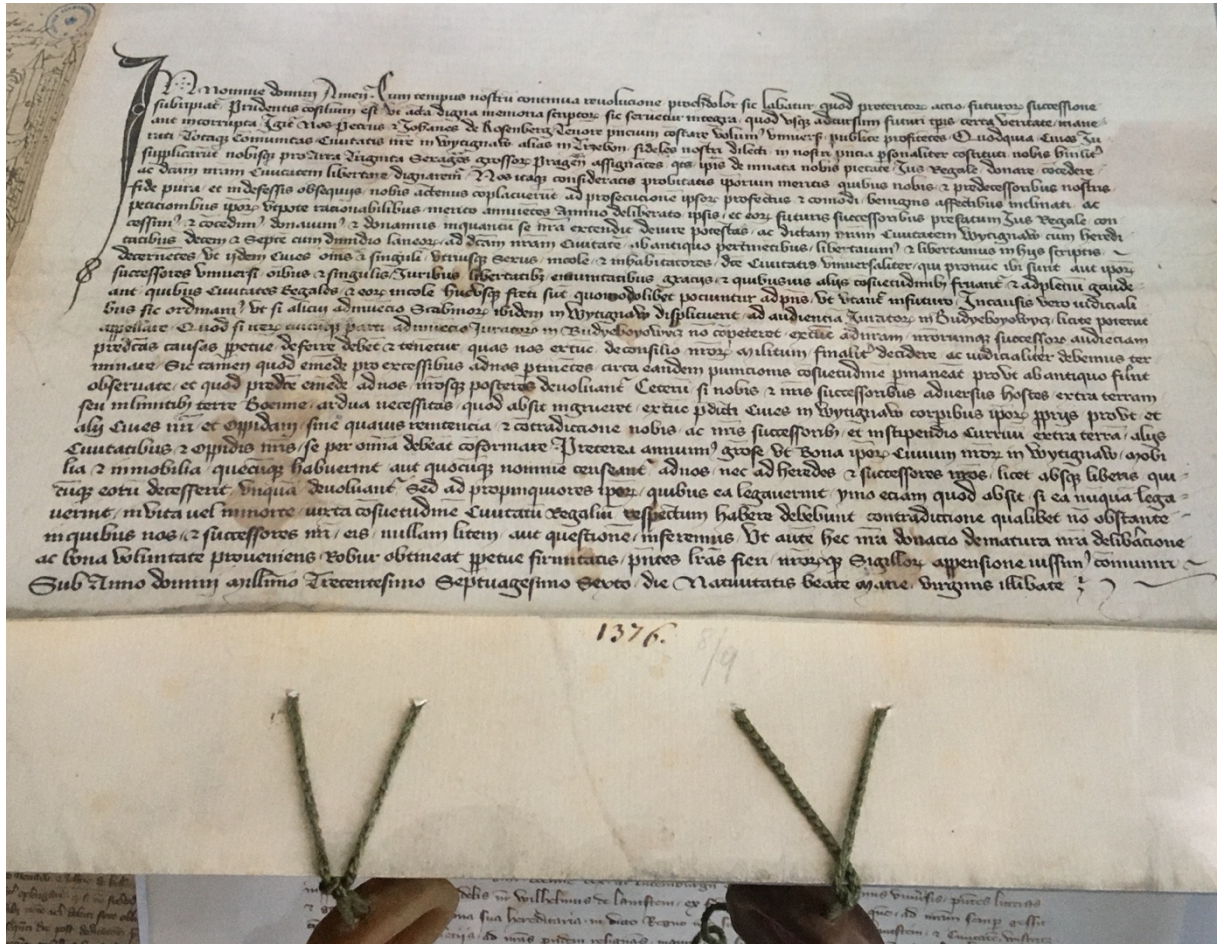 In Nomine domini Amen Cum tempus nostrũ continua reuolucione prochdolor sic labatur quod preteritoꝝ actio futuroꝝ successione
subripiat᷑ Prudentis cõsilium est vt acta digna memoria scriptoꝝ sic seruetur integra quod vsqꝫ aduersum futuri tp̃is certa veritate mane
ant incorrupta Igit᷑ Nos Petrus ⁊ Johãnes de Rosenberg Tenore pñcium cõstare volum᷒ vniuersis publice profitẽtes Quodquia Ciues Ju
rati Totaqꝫ Cõmunitas Ciuitatis nr̃e in Wytignaw alias in Trzebon fideles nostri dilecti in nostri pñcia p̃sonaliter cõstituti nobis hũilit᷑
supplicarũt nobisqꝫ pro Arra Triginta Seragõs grossoꝝ Pragẽn assignatẽs qts ip̃is de innata nobis pietate Jus Regale donare cõcedere
ac dcãm nr̃am Ciuitatem libertare dignarem᷑ Nos itaqꝫ consideratis probitatis ip̃orum meritis quibus nobis ⁊ predecessoribus nostris
fide pura et indefessis obsequijs nobis actenus cõplacuerũt ad prosecucione ip̃soꝝ profectus ⁊ cõmodi benignis affectibus inclinati ac
peticionibus ip̃oꝝ vtpote racionabilibus merito annuẽtes Animo deliberato ipsis et eoꝝ futuris successoribus prefatum Jus Regale con
cessim᷒ ⁊ cõcedim᷒ donauim᷒ ⁊ donamus inquantũ se nr̃a extendit de iure potestas ac dictam nr̃am Ciuitatem Wytignaw cum heredi
tatibus decem ⁊ Septẽ cum dimidio laneoꝝ ad dcãm nr̃am Ciuitatẽ ab antiquo pertinẽtibus libertauim᷒ ⁊ libertamus in hijs scriptis
decernẽtes vt ijdem Ciues om̃s ⁊ singuli vtriusqꝫ Sexus incole ⁊ inhabitatores dc̃e Ciuitatis vniuersaliter qui pronũc ibi sunt aut ip̃oꝝ
successores vniuersi oĩbus ⁊ singulis Juribus libertatibꝫ emunitatibus gracijs ⁊ quibusuis alijs cõsuetudinibꝫ fruant᷑ ⁊ adpleni gaude
ant quibus Ciuitates Regales ⁊ eoꝝ incole hucusqꝫ freti sũt quomodolibet pociuntur adpñs vt vtant᷑ infuturũ Incausis vero iudiciali
bus sic ordinam᷒ vt si alicui adinuẽcio Scabinoꝝ ibidem in Wytignaw displicuerit ad audiencia Juratoꝝ in Budyeboyowicz licite poterit
appellare Quod si itcr̃ cuicũqꝫ parti adinuẽcio Juratoꝝ in Budyeboyowicz nõ cõpeteret extũc ad nr̃am nr̃orumqꝫ successoꝝ audiẽciam
predc̃as causas ꝑpetue deferre debet ⁊ tenetur quas nos extũc de consilio nr̃oꝝ Militum finalit᷑ decidere ac iudicialiter debemus ter
minare Sic tamen quod emẽde pro excessibus adnos ꝑtinẽtes circa eandem puncionis cõsuetudinẽ ꝑmaneãt prout ab antiquo fũnt
obseruate et quod predc̃e emẽde ad nos nr̃osqꝫ posteros deuoluant᷑ Ceterũ si nobis ⁊ nr̃is successoribus aduersus hostes extra terram
seu inlimitibꝫ terre Boemie ardua necessitas quod absit ingrueret extũc p̃dicti Ciues in Wytignaw corp̃ibus ip̃oꝝ ꝓprijs prout et
alij Ciues nr̃i et Opidani sine quauis renitencia ⁊ cõtradictione nobis ac nr̃is successoribꝫ et instipendio Curruũ extra terrã alijs
Ciuitatibus ⁊ Opidis nr̃is se per om̃ia debeãt cõformare Preterea annuim᷒ grõse vt Bona ip̃oꝝ Ciuium nr̃oꝝ in Wytignaw Mobi
lia ⁊ immobilia quecũqꝫ habuerint aut quocũqꝫ nomine censeant᷑ adnos nec ad heredes ⁊ successores nr̃os licet absqꝫ liberis qui
cũqꝫ eorũ decesserit vnquã deuoluant᷑ Sed ad propinquiores ip̃oꝝ quibus ea legauerint ymo eciam quod absit si ea nũquã lega
uerint in vita uel inmorte iuxta cõsuetudinẽ Ciuitatũ Regaliũ respectum habere debebunt contradictione qualibet nõ obstante
in quibus nos ⁊ successores nr̃i eis nullam litem aut questionẽ inferemus Vt autẽ hec nr̃a donacio dematura nr̃a delibãcione
ac bona voluntate proueniens Robur obtineat ꝑpetue firmitatis pñtes lr̃as fieri nr̃oꝝqꝫ Sigilloꝝ appensione iussim᷒ cõmuniri
Sub Anno domini Millĩmo Trecentesimo Septuagesimo Sexto die Natiuitatis beate Marie virginis illibate
1376.
8/9